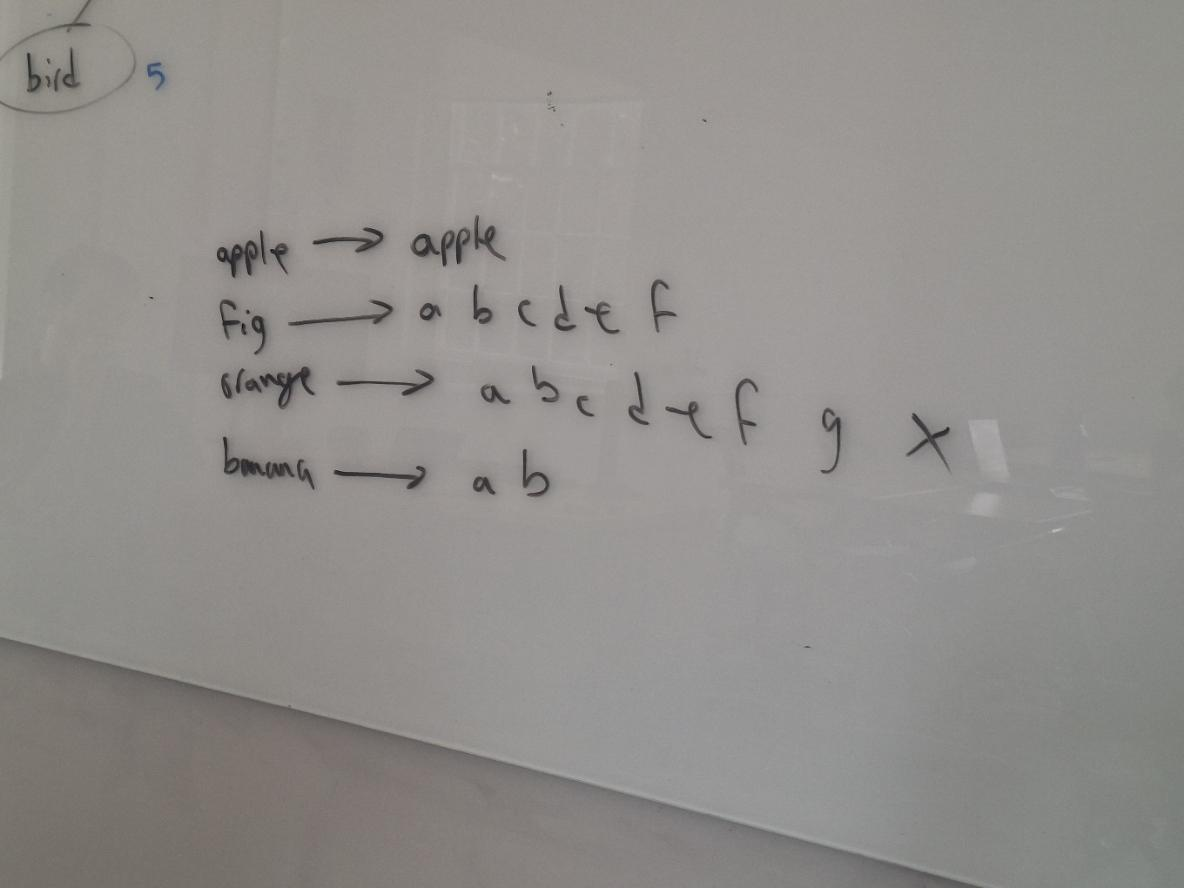 bird 5
apple → apple
fig → a b c d e f
orange → a b c d e f g x
banana → a b